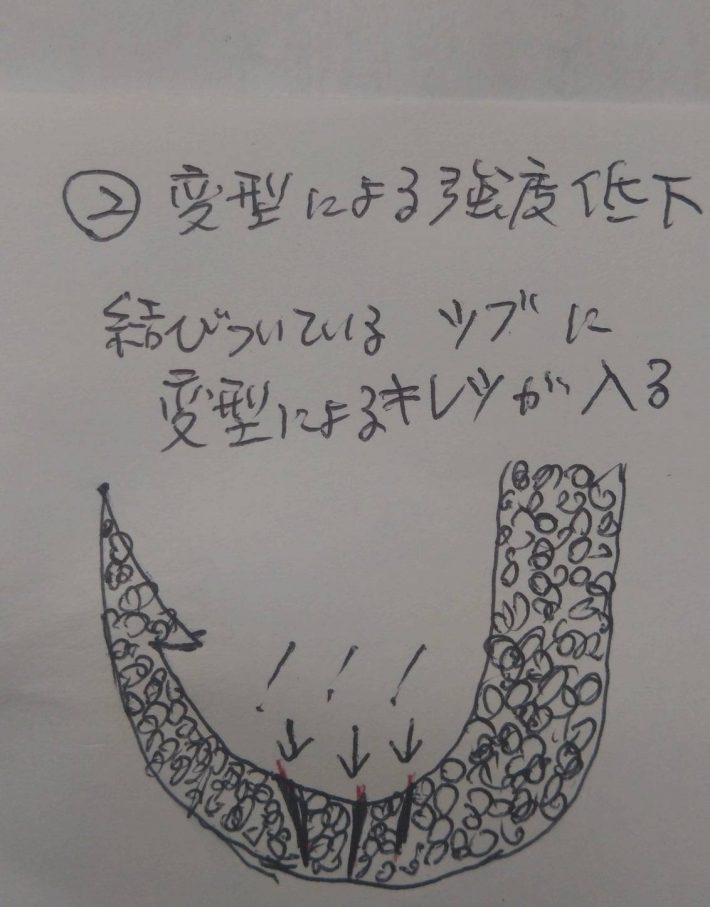 ② 変型による強度低下
結びついている ツブに
変型によるキレツが入る
! ! !